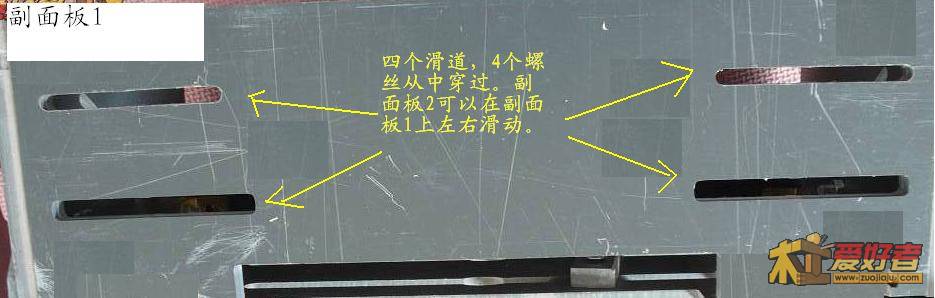 副面板1
四个滑道，4个螺
丝从中穿过。副
面板2可以在副面
板1上左右滑动。
木工爱好者
www.zuojiaju.com